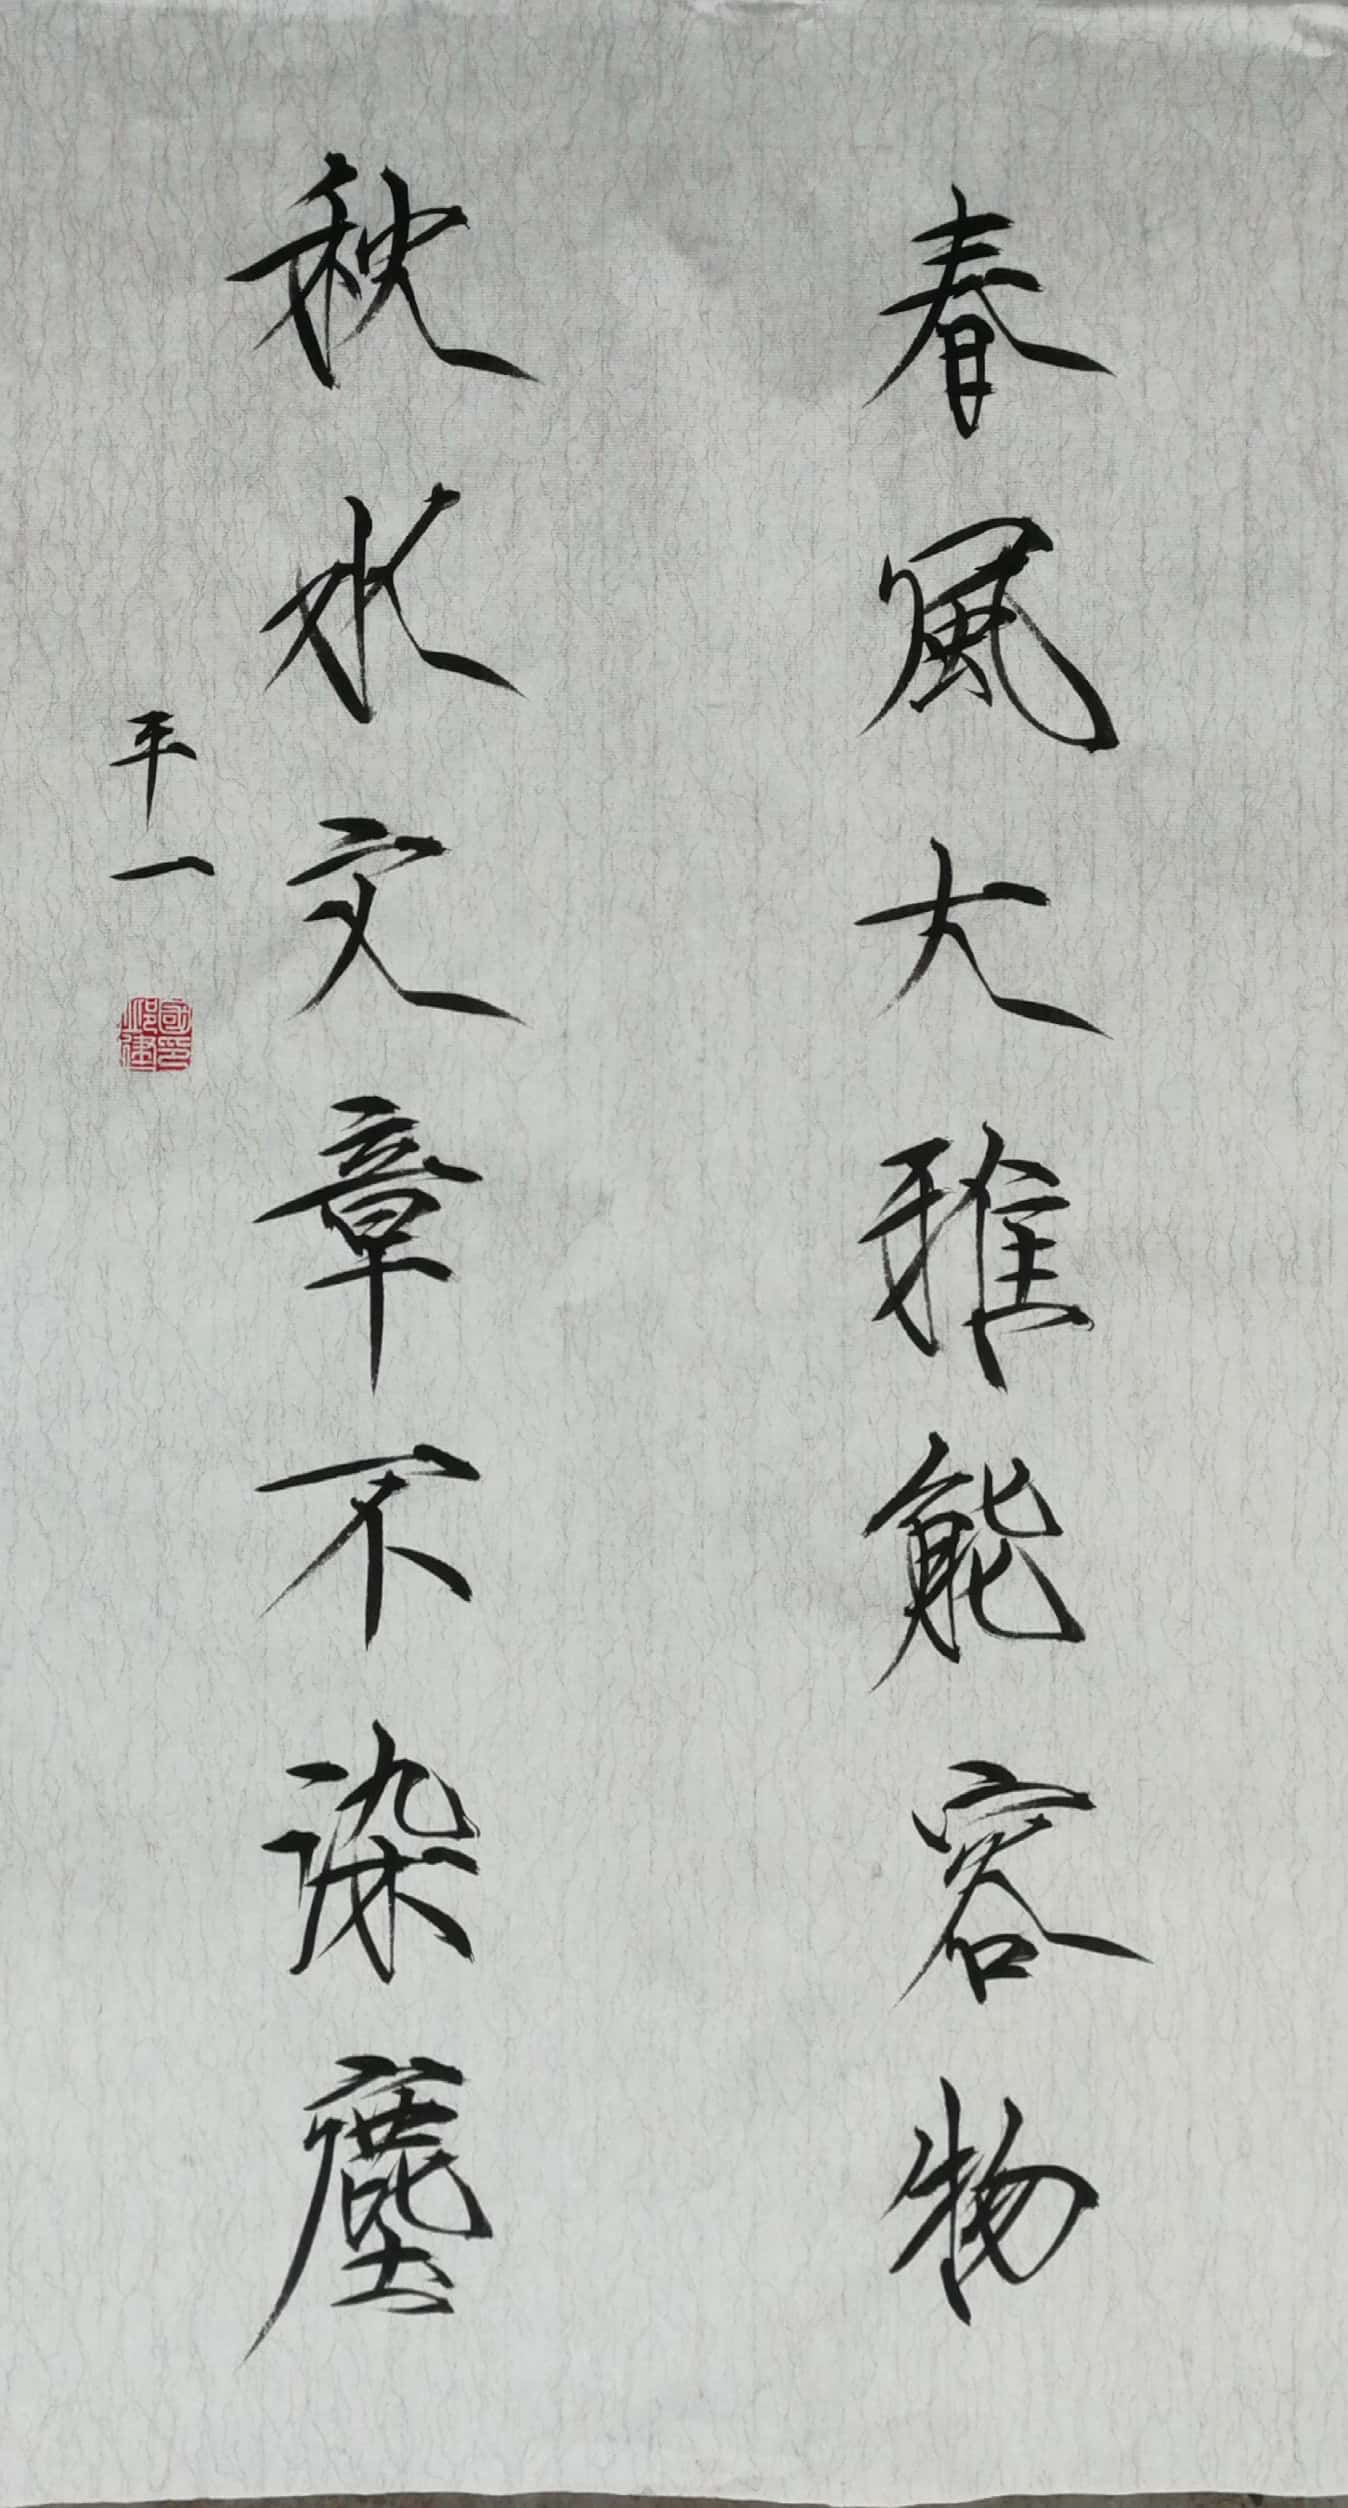 春風大雅能容物
秋水文章不染塵
平一